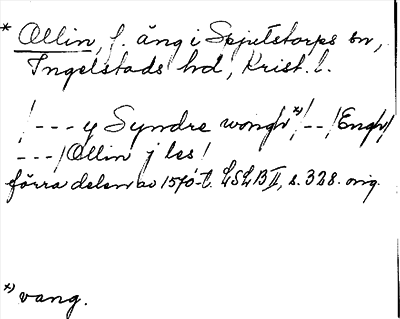 * Ollin, f. äng i Spjutstorps sn,
Ingelstads hd, Krist. l.
/--- y Syndre wongh *)/--/Engh/
---/Ollin j les/
förra delen av 1570-t. LSLB II, s. 328. orig.
*) vang.